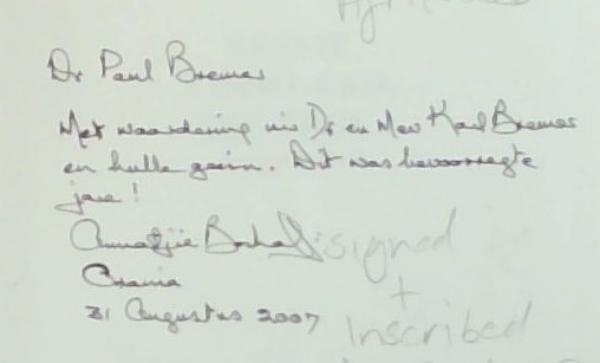 Dr Paul Bremer
Met waardering vir Dr en Mev Karl Bremer
en hulle gesin. Dit was bevoorregte
jare!
Annatjie
31 Augustus 2007
signed
+
Inscribed